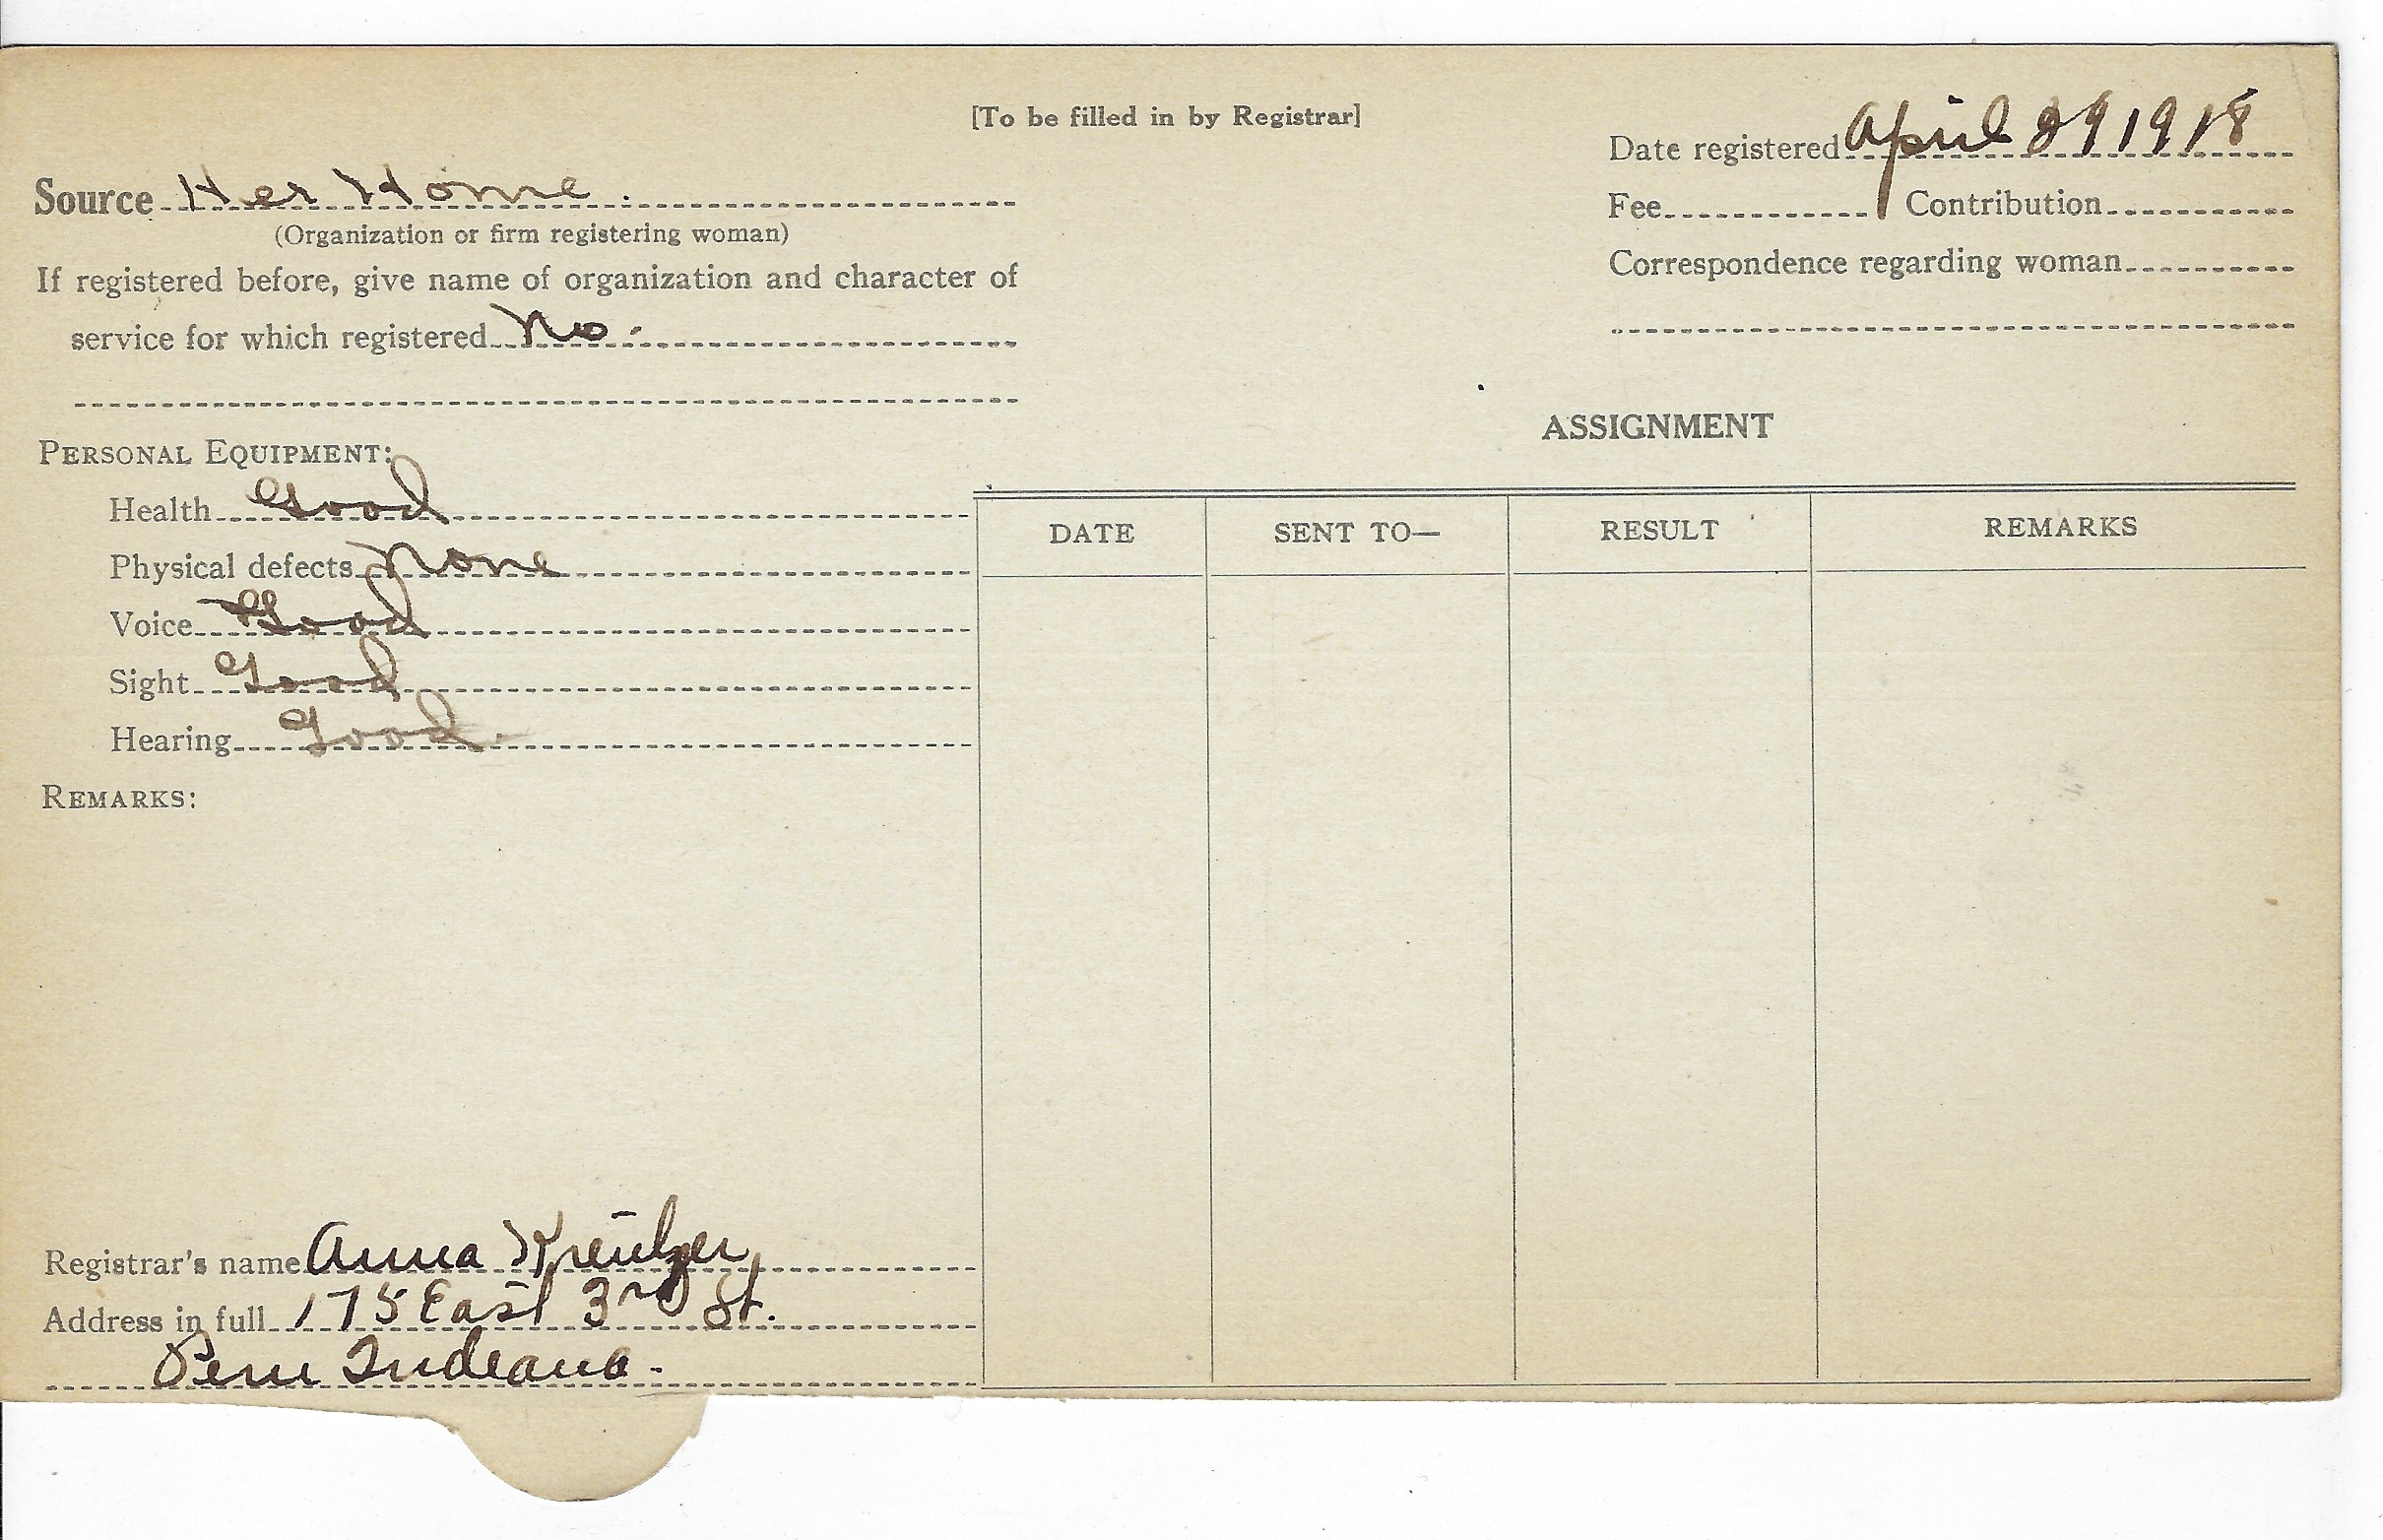 [To be filled in by Registrar]
Date registered April 29 1918
Source Her Home.
(Organization or firm registering woman)
Fee Contribution
If registered before, give name of organization and character of
service for which registered No.
Correspondence regarding woman
ASSIGNMENT
PERSONAL EQUIPMENT:
Health Good
Physical defects None
Voice Good
Sight Good
Hearing Good.
DATE SENT TO— RESULT REMARKS
REMARKS:
Registrar's name Anna Kreutzer
Address in full 175 East 3rd St.
Peru Indeana.